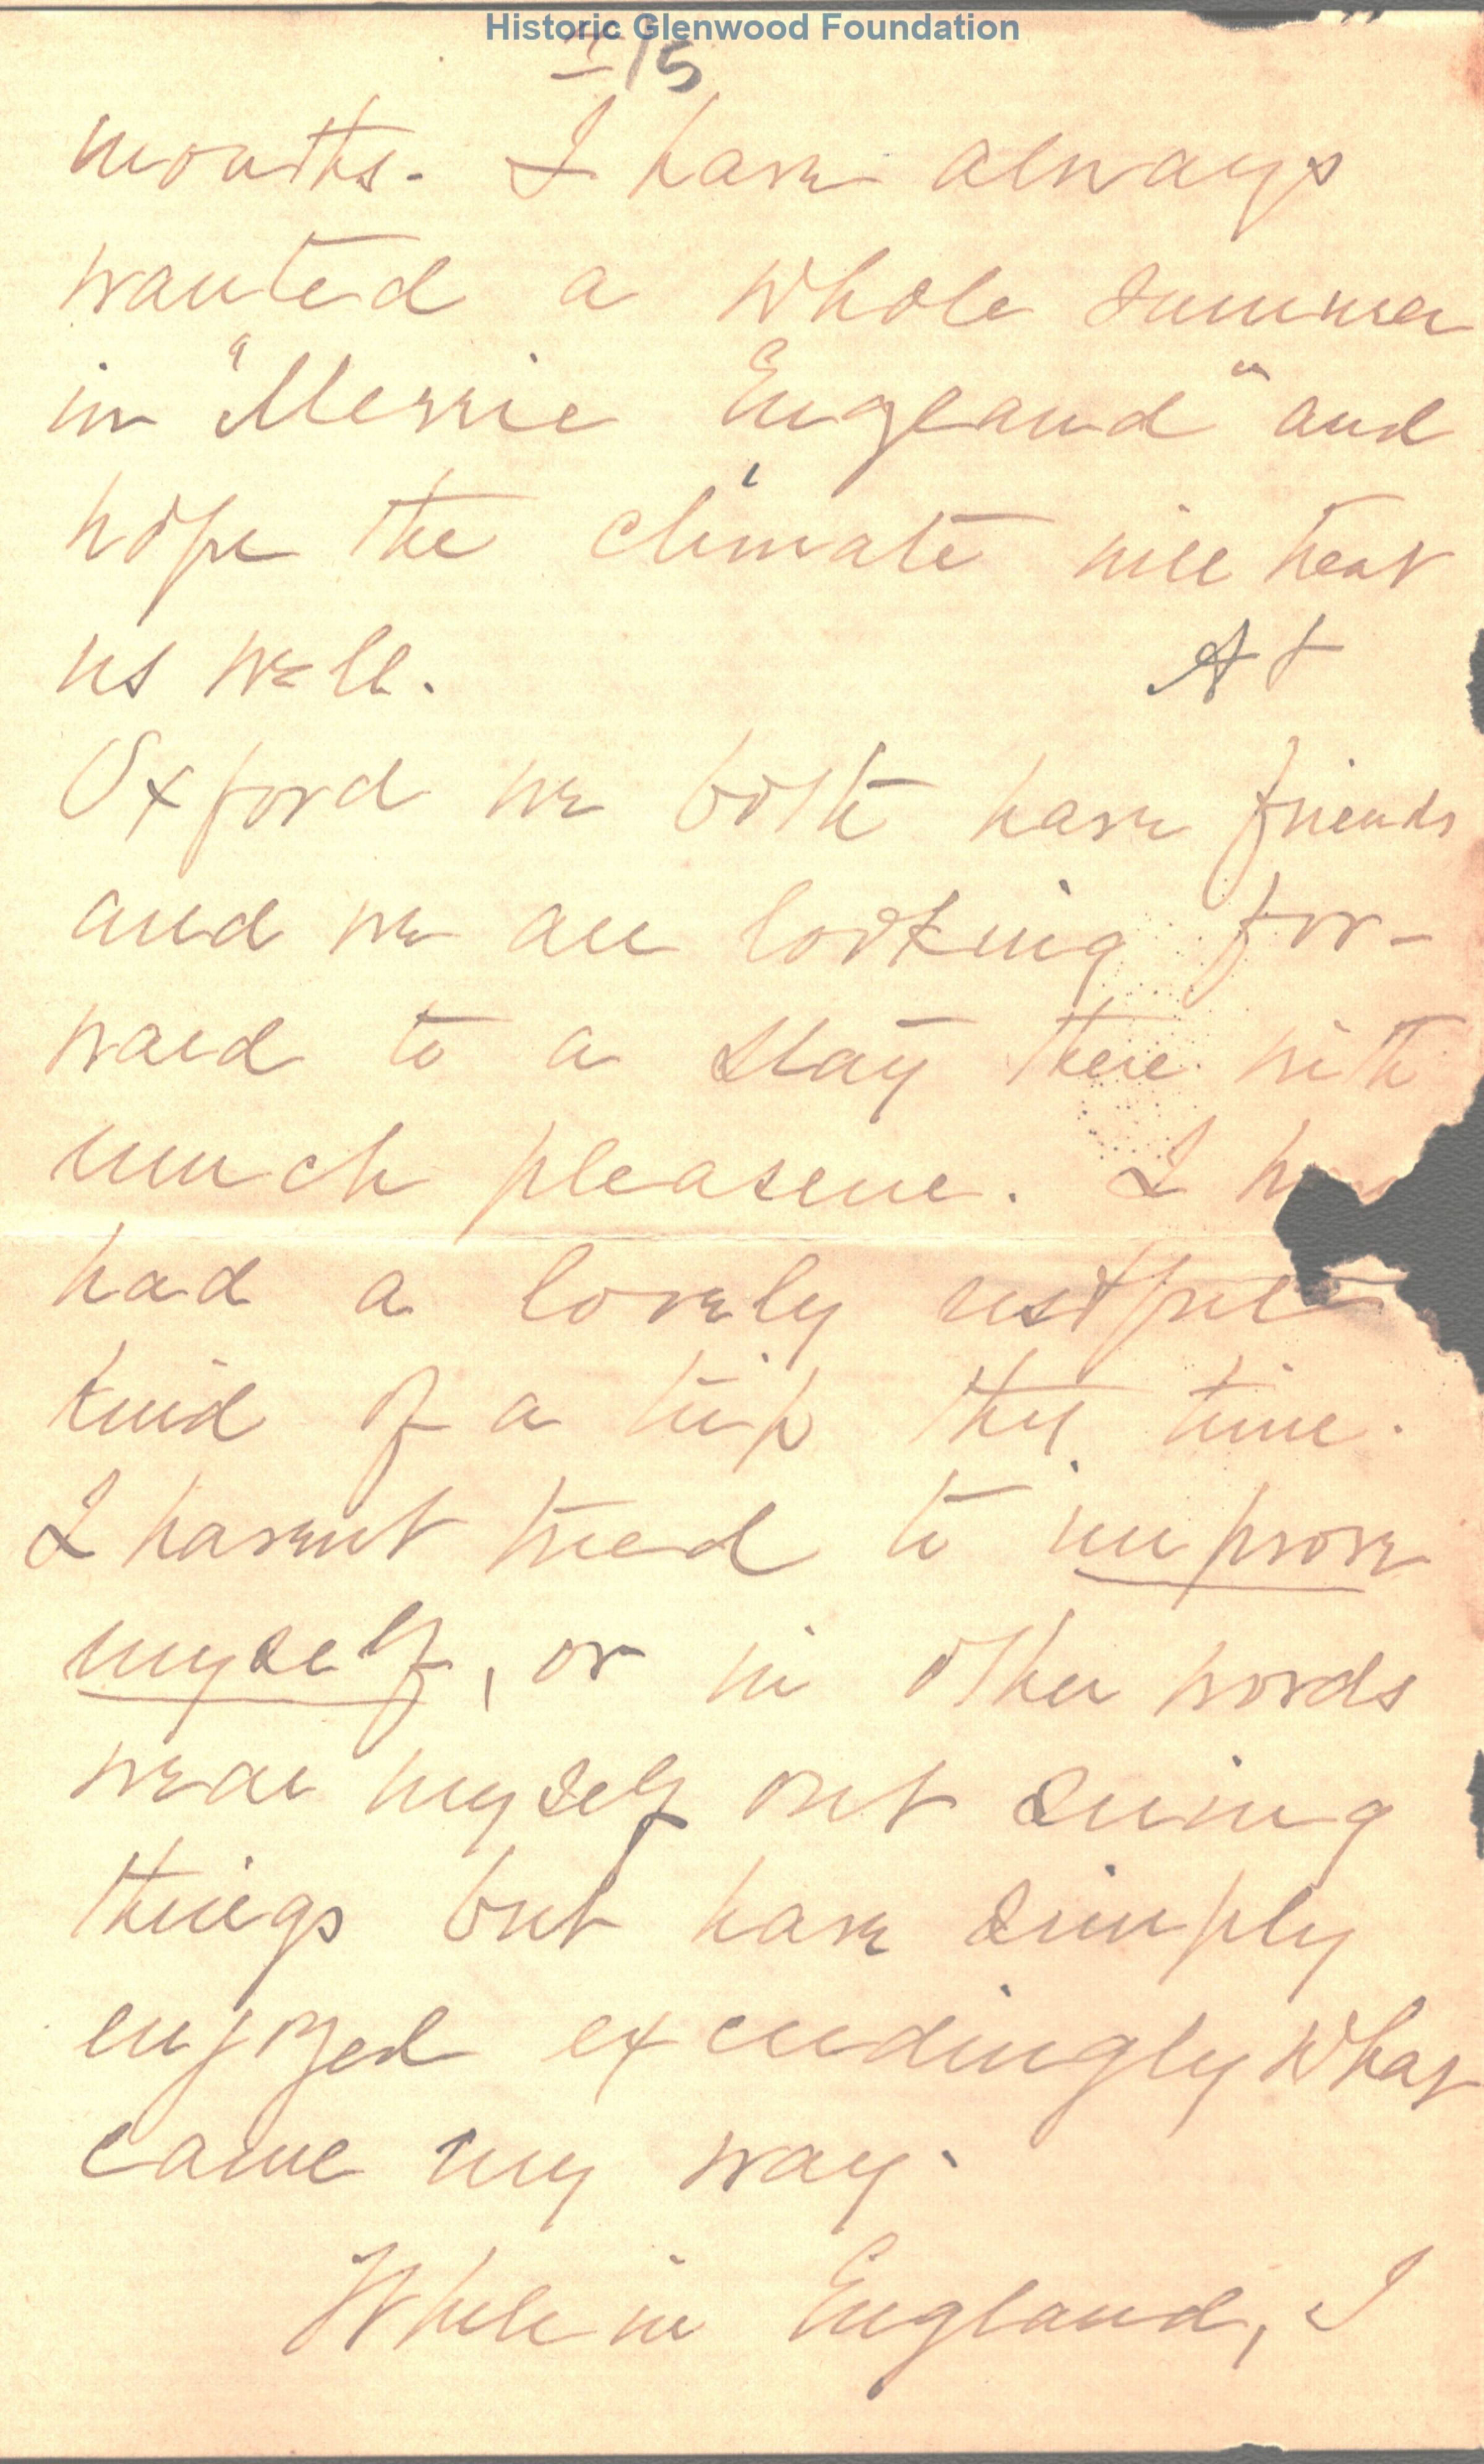 Historic Glenwood Foundation
15
months. I have always
wanted a whole summer
in "Merrie England" and
hope the climate will treat
us well. At
Oxford we both have friends
and we are looking for-
ward to a stay there with
much pleasure. I
had a lovely restful
kind of a trip this time.
I havent tried to improve
myself, or in other words
wear myself out seeing
things but have simply
enjoyed exceedingly what
came my way.
While in England, I